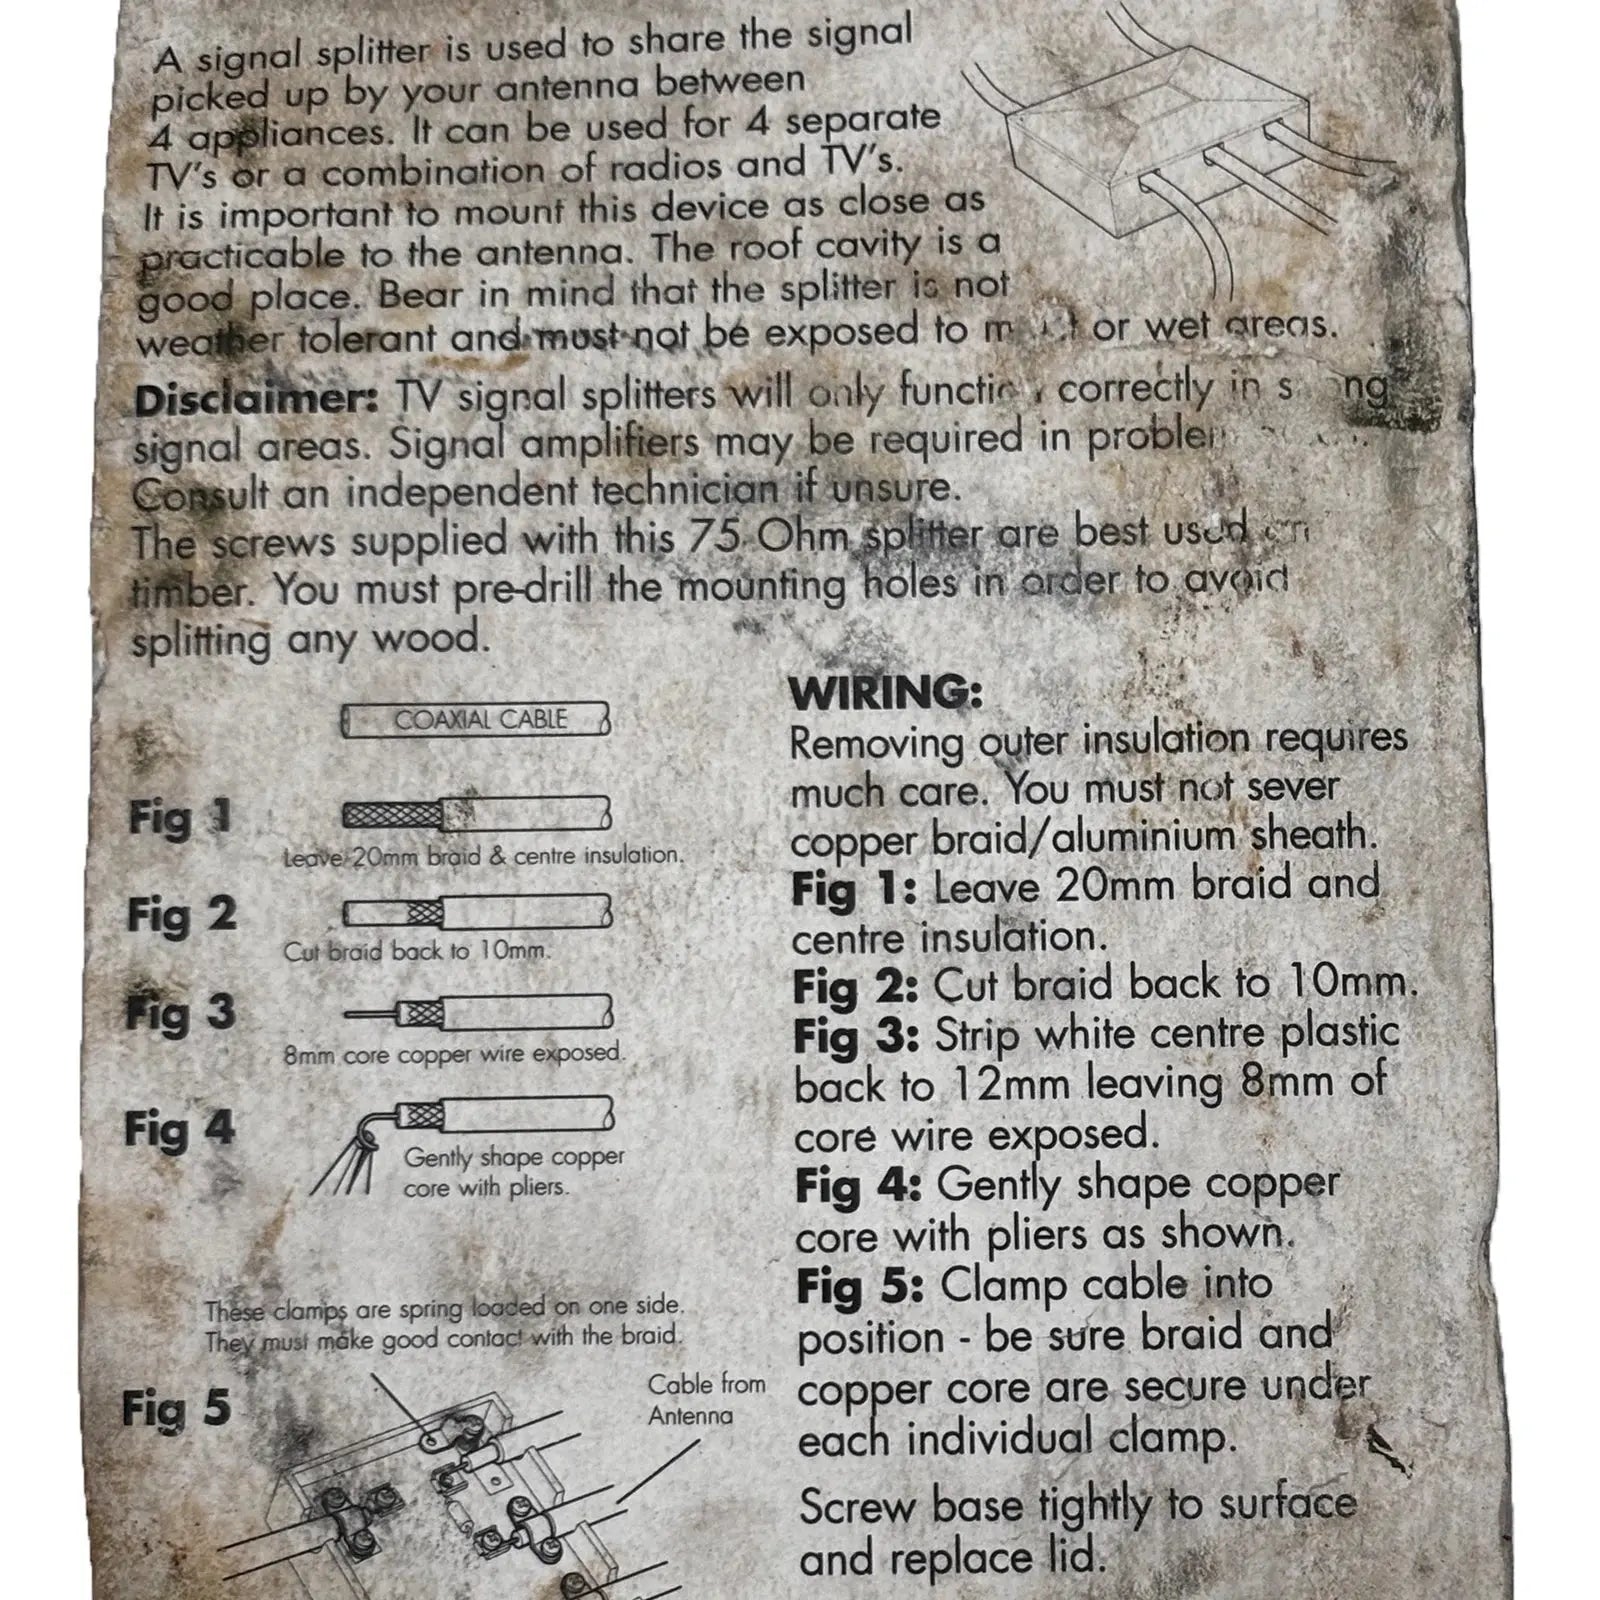 A signal splitter is used to share the signal
picked up by your antenna between
4 appliances. It can be used for 4 separate
TV's or a combination of radios and TV's.
It is important to mount this device as close as
practicable to the antenna. The roof cavity is a
good place. Bear in mind that the splitter is not
weather tolerant and must not be exposed to or wet areas.
Disclaimer: TV signal splitters will only function correctly in strong
signal areas. Signal amplifiers may be required in problem
Consult an independent technician if unsure.
The screws supplied with this 75 Ohm splitter are best used on
timber. You must pre-drill the mounting holes in order to avoid
splitting any wood.
COAXIAL CABLE
Fig 1
Leave 20mm braid & centre insulation.
Fig 2
Cut braid back to 10mm.
Fig 3
8mm core copper wire exposed.
Fig 4
Gently shape copper
core with pliers.
These clamps are spring loaded on one side.
They must make good contact with the braid.
Fig 5
Cable from
Antenna
WIRING:
Removing outer insulation requires
much care. You must not sever
copper braid/aluminium sheath.
Fig 1: Leave 20mm braid and
centre insulation.
Fig 2: Cut braid back to 10mm.
Fig 3: Strip white centre plastic
back to 12mm leaving 8mm of
core wire exposed.
Fig 4: Gently shape copper
core with pliers as shown.
Fig 5: Clamp cable into
position - be sure braid and
copper core are secure under
each individual clamp.
Screw base tightly to surface
and replace lid.